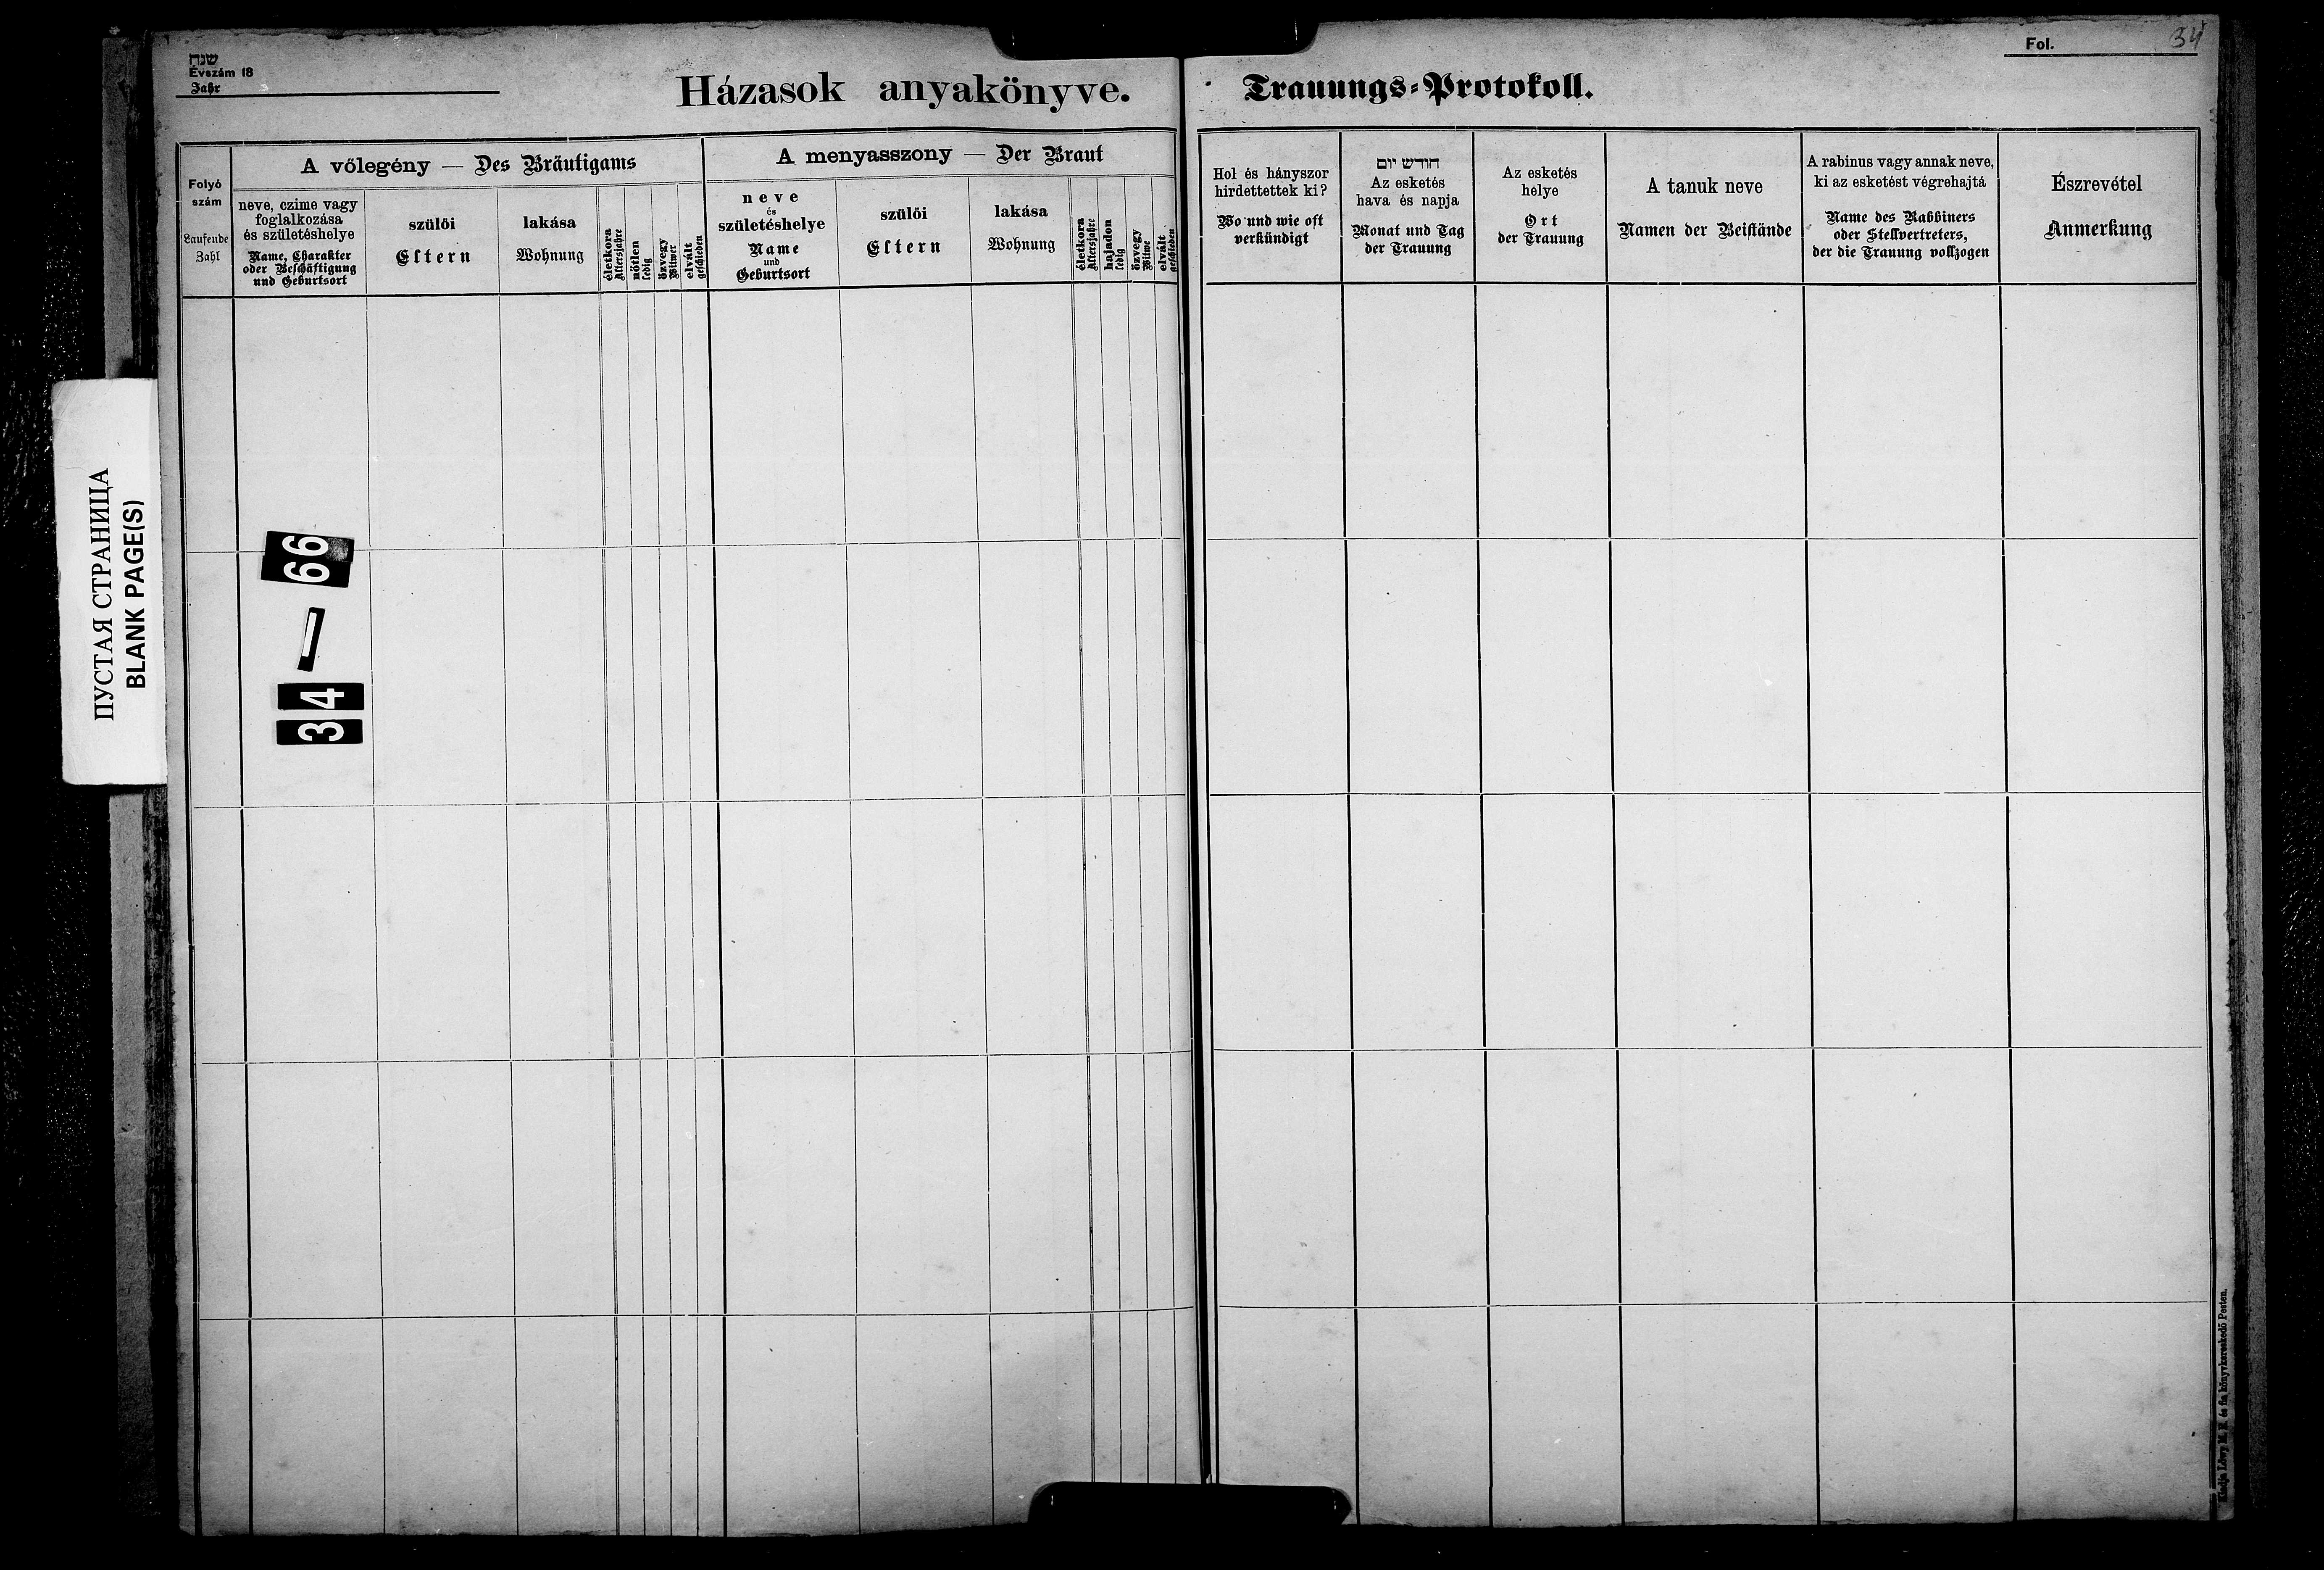 שנת
Évszám 18
Jahr
Házasok anyakönyve.
Trauungs=Protokoll.
Fol. 34
Folyó
szám
Laufende
Zahl
A vőlegény — Des Bräutigams
neve, czime vagy
foglalkozása
és születéshelye
Name, Charakter
oder Beschäftigung
und Geburtsort
szülöi
Eltern
lakása
Wohnung
életkora
Altersjahre
nőtlen
ledig
özvegy
Witwer
elvált
geschieden
A menyasszony — Der Braut
neve
és
születéshelye
Name
und
Geburtsort
szülöi
Eltern
lakása
Wohnung
életkora
Altersjahre
hajadon
ledig
özvegy
Witwe
elvált
geschieden
Hol és hányszor
hirdettettek ki?
Wo und wie oft
verkündigt
חודש יום
Az esketés
hava és napja
Monat und Tag
der Trauung
Az esketés
helye
Ort
der Trauung
A tanuk neve
Namen der Beistände
A rabinus vagy annak neve,
ki az esketést végrehajtá
Name des Rabbiners
oder Stellvertreters,
der die Trauung vollzogen
Észrevétel
Anmerkung
ПУСТАЯ СТРАНИЦА
BLANK PAGE(S)
34 — 66
Kiadja Löwy M. E. és fia könyvkereskedő Pesten.